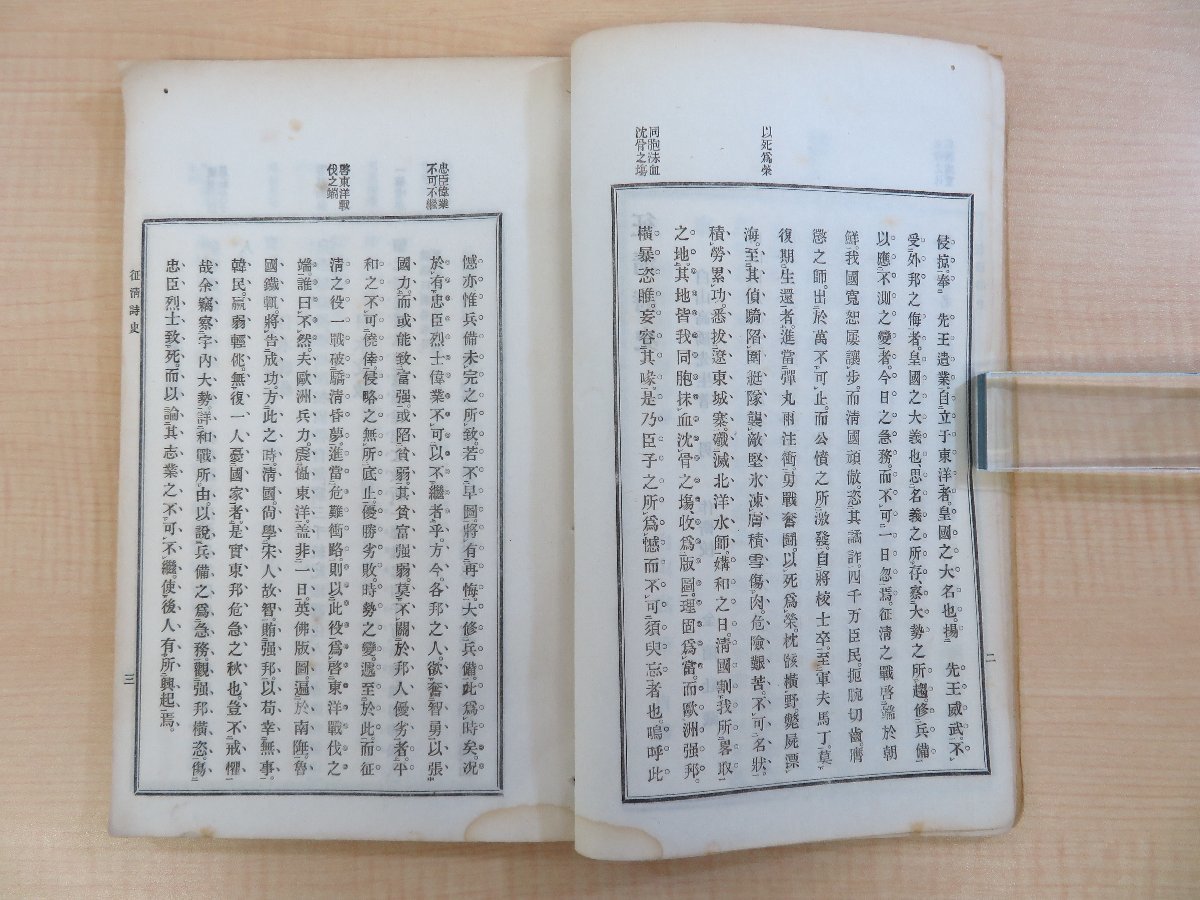 以死爲榮
同胞沫血
沈骨之塲
侵掠。奉 先王遺業、自立于東洋者、皇國之大名也。揚 先王威武、不
受外邦之侮者、皇國之大義也。思名義之所存、察大勢之所趨、修兵備
以應不測之變者、今日之急務。而不可一日忽焉。征清之戰、啓端於朝
鮮。我國寬恕屢讓步。而清國頑傲、恣其譎詐。四千万臣民、扼腕切齒、膺
懲之師、出於萬不可止。而公憤之所激發、自將校士卒、至軍夫馬丁、莫
復期生還者。進當彈丸雨注、衝勇戰奮鬪、以死爲榮、枕骸橫野、斃屍漂
海。至其偵騎陷圍、艇隊襲敵、堅氷凍膚、積雪傷肉、危險艱苦、不可名狀。
積勞累功、悉拔遼東城寨、殲滅北洋水師、媾和之日、清國割我所畧取
之地。其地皆我同胞抹血沈骨之塲、收爲版圖、理固爲當。而歐洲强邦、
橫暴恣睢、妄容其喙。是乃臣子之所爲憾而不可須臾忘者也。嗚呼此
二
忠臣偉業
不可不繼
啓東洋戰
伐之端
憾亦惟兵備未完之所致。若不早圖、將有再悔。大修兵備、此爲時矣。况
於有忠臣烈士偉業不可以不繼者乎。方今各邦之人、欲奮智勇以張
國力。而或能致富强、或陷貧弱。其貧富强弱、莫不關於邦人優劣者。平
和之不可僥倖、侵略之無所底止。優勝劣敗、時勢之變、遷至於此。而征
清之役、一戰破驕清昏夢、進當危難衝路、則以此役爲啓東洋戰伐之
端、誰曰不然。夫歐洲兵力、震慴東洋、盖非一日。英佛版圖、遍於南陲、魯
國鐵軌、將告成功。方此之時、清國尙學宋人故智、賄强邦以苟幸無事。
韓民羸弱輕佻、無復一人憂國家者。是實東邦危急之秋也。豈不戒懼
哉。余竊察宇內大勢、評和戰所由、以說兵備之爲急務、觀强邦橫恣、傷
忠臣烈士致死、而以論其志業之不可不繼、使後人有所興起焉。
征清詩史
三